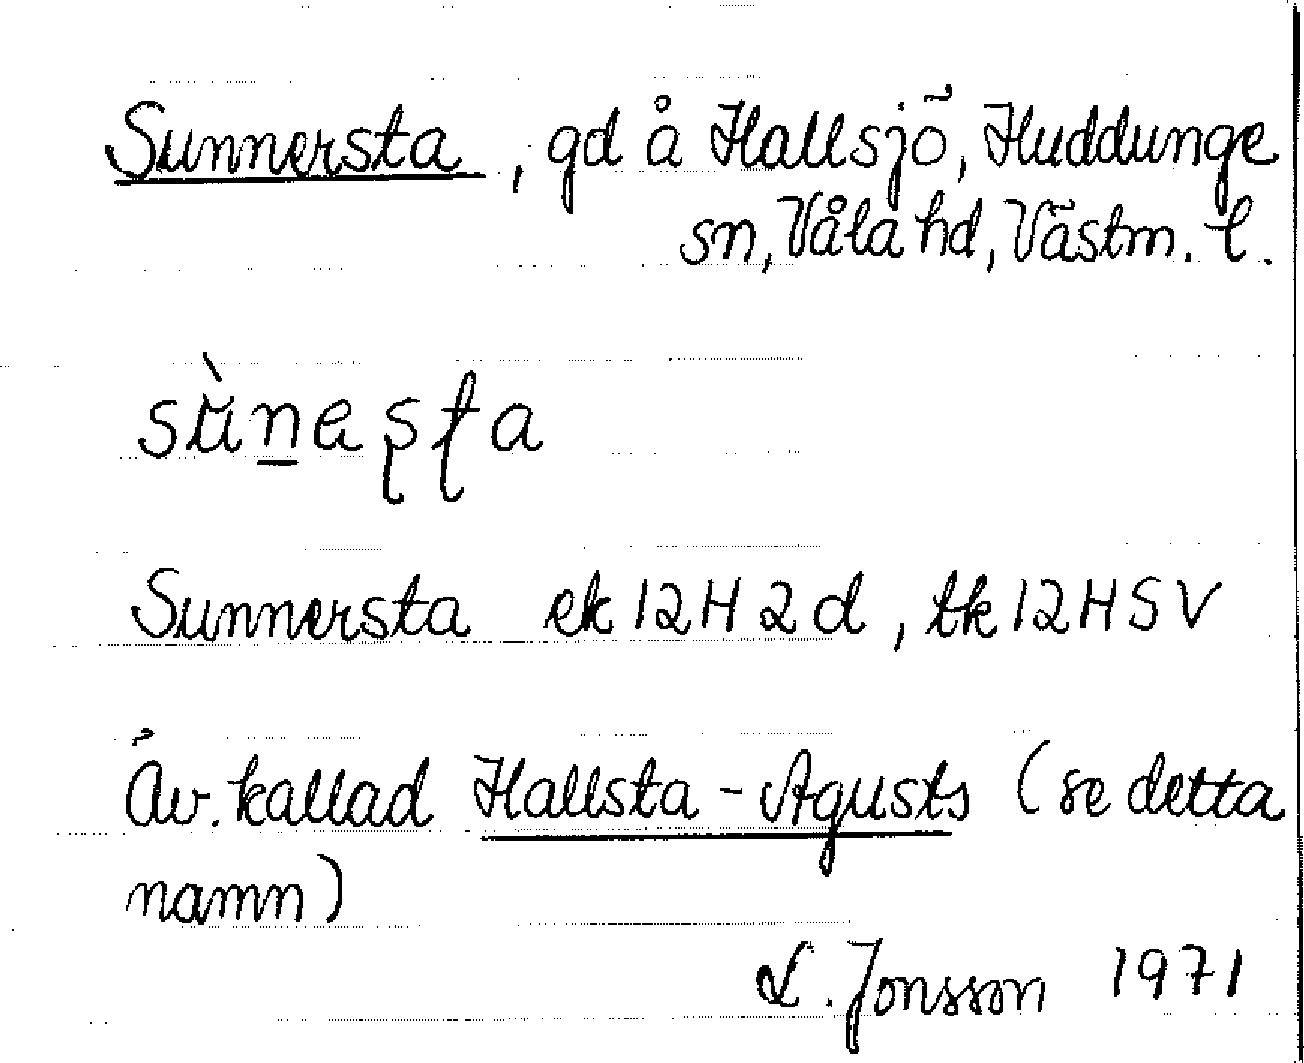 Sunnersta, gd å Hallsjö, Huddunge
sn, Våla hd, Västm. l.
sùneşţa
Sunnersta ek 12H2d, tk 12HSV
Äv. kallad Hallsta-Agusts (se detta
namn)
L. Jonsson 1971